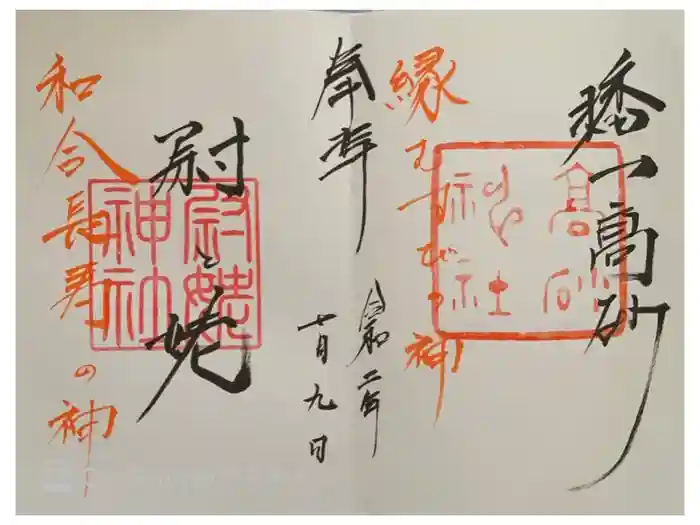 播州高砂
高砂
神社
縁むすびの神
奉拝
令和二年
十月九日
尉と姥
尉姥
神社
和合長寿の神